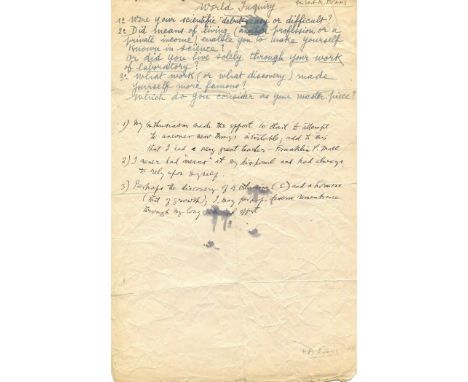 World Inquiry
Herbert M. Evans
1º Were your scientific debuts easy or difficult?
2º Did means of living ( a profession or a
private income) enable you to make yourself
known in science?
Or did you live solely through your work
of laboratory?
3º What work (or what discovery) made
yourself more famous?
Which do you consider as your master-piece?
1) My enthusiasm made the effort to start to attempt
to uncover new things inevitable; add to this
that I had a very great teacher - Franklin P. Mall
2) I never had "means" at my disposal and had always
to rely upon myself.
3) Perhaps the discovery of a vitamin (E) and a hormone
(that of growth), I may perhaps deserve remembrance
through my long effort
Evans